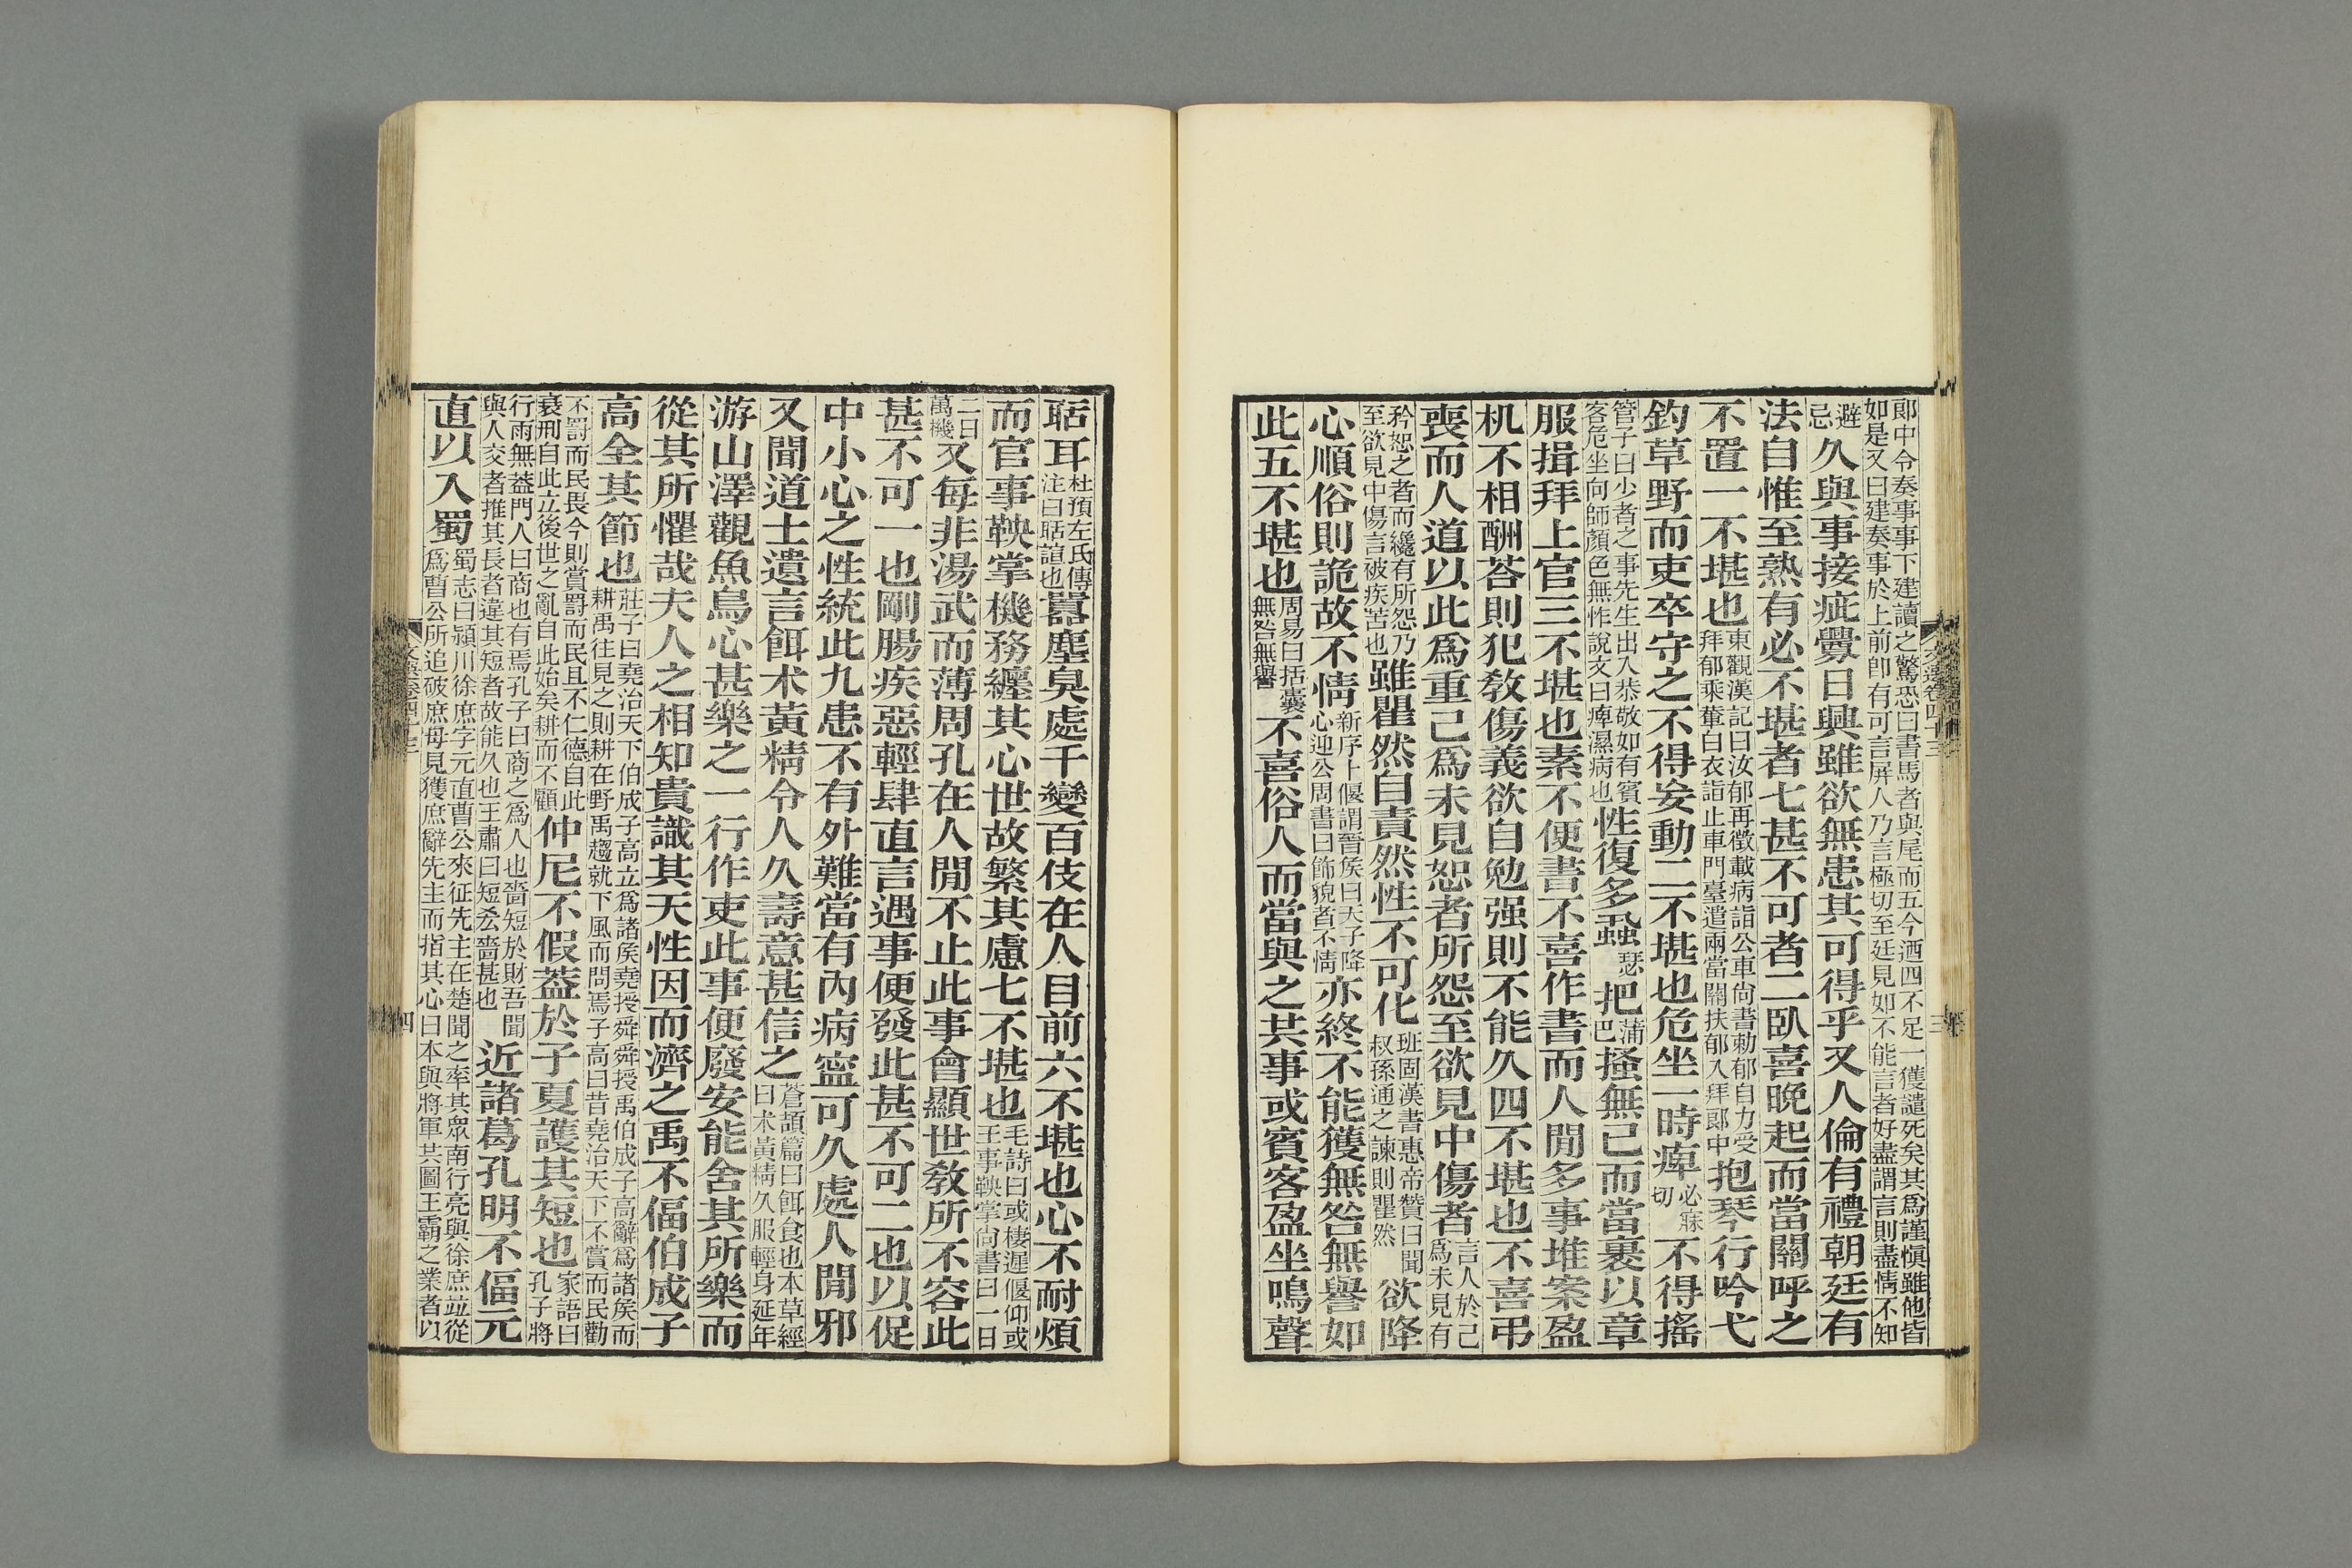 郞中令奏事事下建讀之驚恐曰書馬者與尾而五今迺四不足一獲譴死矣其爲謹愼雖他皆
如是又曰建奏事於上前卽有可言屏人乃言極切至廷見如不能言者好盡謂言則盡情不知
避忌久與事接疵釁日興雖欲無患其可得乎又人倫有禮朝廷有
法自惟至熟有必不堪者七甚不可者二臥喜晚起而當關呼之
不置一不堪也東觀漢記曰汝郁再徵載病詣公車尙書勅郁自力受拜郁乘輦白衣詣止車門臺遣兩當關扶郁入拜郞中抱琴行吟弋
釣草野而吏卒守之不得妄動二不堪也危坐一時痺必寐切不得搖
管子曰少者之事先生出入恭敬如有賓客危坐向師顏色無怍說文曰痺濕病也性復多蝨瑟把蒲巴搔無已而當裹以章
服揖拜上官三不堪也素不便書不喜作書而人閒多事堆案盈
机不相酬荅則犯敎傷義欲自勉强則不能久四不堪也不喜弔
喪而人道以此爲重己爲未見恕者所怨至欲見中傷者言人於己爲未見有
矜恕之者而纔有所怨乃至欲見中傷言被疾苦也雖瞿然自責然性不可化班固漢書惠帝贊曰聞叔孫通之諫則瞿然欲降
心順俗則詭故不情新序卜偃謂晉矦曰天子降心迎公周書曰飾貌者不情亦終不能獲無咎無譽如
此五不堪也周易曰括囊無咎無譽不喜俗人而當與之共事或賓客盈坐鳴聲
文選卷四十三
三
聒耳杜預左氏傳注曰聒諠也囂塵臭處千變百伎在人目前六不堪也心不耐煩
而官事鞅掌機務纏其心世故繁其慮七不堪也毛詩曰或棲遲偃仰或王事鞅掌尙書曰一日
二日萬機又每非湯武而薄周孔在人閒不止此事會顯世敎所不容此
甚不可一也剛腸疾惡輕肆直言遇事便發此甚不可二也以促
中小心之性統此九患不有外難當有內病寍可久處人閒邪
又聞道士遺言餌术黃精令人久壽意甚信之蒼頡篇曰餌食也本草經曰术黃精久服輕身延年
游山澤觀魚鳥心甚樂之一行作吏此事便廢安能舍其所樂而
從其所懼哉夫人之相知貴識其天性因而濟之禹不偪伯成子
高全其節也莊子曰堯治天下伯成子高立爲諸矦堯授舜舜授禹伯成子高辭爲諸矦而耕禹往見之則耕在野禹趨就下風而問焉子高曰昔堯治天下不賞而民勸
不罰而民畏今則賞罰而民且不仁德自此衰刑自此立後世之亂自此始矣耕而不顧仲尼不假葢於子夏護其短也家語曰孔子將
行雨無葢門人曰商也有焉孔子曰商之爲人也嗇短於財吾聞與人交者推其長者違其短者故能久也王肅曰短吝嗇甚也近諸葛孔明不偪元
直以入蜀蜀志曰潁川徐庶字元直曹公來征先主在楚聞之率其眾南行亮與徐庶竝從爲曹公所追破庶母見獲庶辭先主而指其心曰本與將軍共圖王霸之業者以
文選卷四十三
四